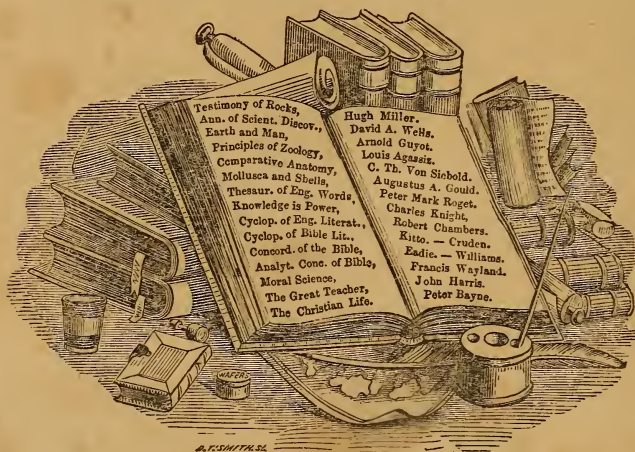 Testimony of Rocks,
Ann. of Scient. Discov.,
Earth and Man,
Principles of Zoology,
Comparative Anatomy,
Mollusca and Shells,
Thesaur. of Eng. Words,
Knowledge is Power,
Cyclop. of Eng. Literat.,
Cyclop. of Bible Lit.,
Concord. of the Bible,
Analyt. Conc. of Bible,
Moral Science,
The Great Teacher,
The Christian Life.
Hugh Miller.
David A. Wells.
Arnold Guyot.
Louis Agassiz.
C. Th. Von Siebold.
Augustus A. Gould.
Peter Mark Roget.
Charles Knight,
Robert Chambers.
Kitto. — Cruden.
Eadie. — Williams.
Francis Wayland.
John Harris.
Peter Bayne.
WAFERS
D.T. SMITH. Sc.